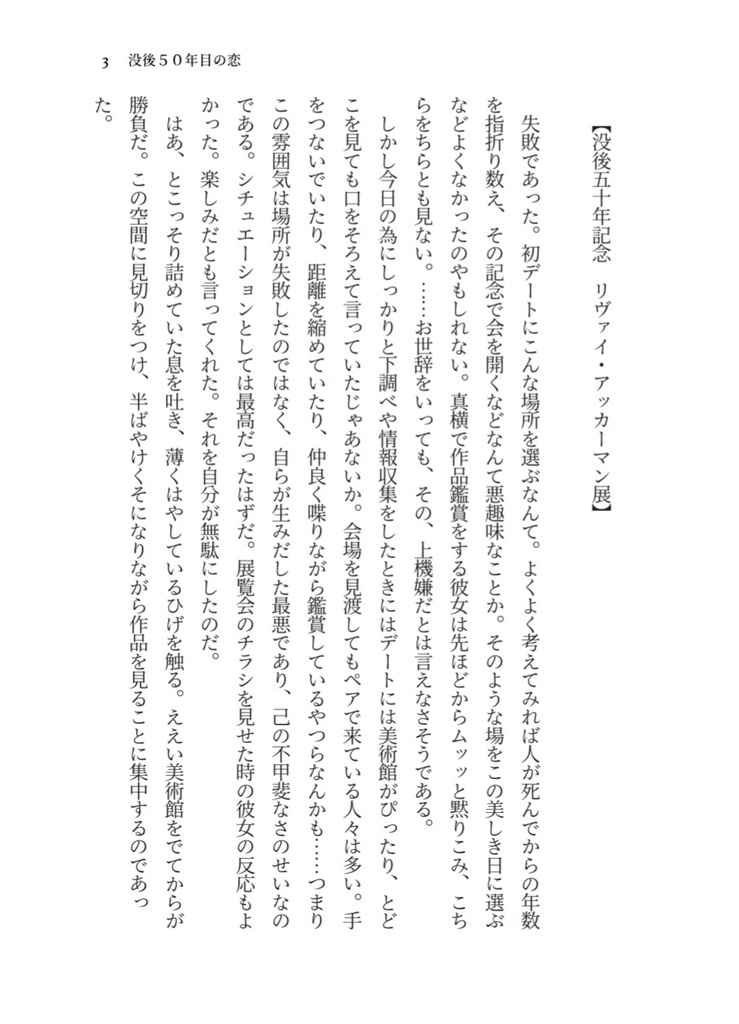 3 没後５０年目の恋
【没後五十年記念　リヴァイ・アッカーマン展】
　失敗であった。初デートにこんな場所を選ぶなんて。よくよく考えてみれば人が死んでからの年数
を指折り数え、その記念で会を開くなどなんて悪趣味なことか。そのような場をこの美しき日に選ぶ
などよくなかったのやもしれない。真横で作品鑑賞をする彼女は先ほどからムッッと黙りこみ、こち
らをちらとも見ない。……お世辞をいっても、その、上機嫌だとは言えなさそうである。
　しかし今日の為にしっかりと下調べや情報収集をしたときにはデートには美術館がぴったり、とど
こを見ても口をそろえて言っていたじゃあないか。会場を見渡してもペアで来ている人々は多い。手
をつないでいたり、距離を縮めていたり、仲良く喋りながら鑑賞しているやつらなんかも……つまり
この雰囲気は場所が失敗したのではなく、自らが生みだした最悪であり、己の不甲斐なさのせいなの
である。シチュエーションとしては最高だったはずだ。展覧会のチラシを見せた時の彼女の反応もよ
かった。楽しみだとも言ってくれた。それを自分が無駄にしたのだ。
　はあ、とこっそり詰めていた息を吐き、薄くはやしているひげを触る。ええい美術館をでてからが
勝負だ。この空間に見切りをつけ、半ばやけくそになりながら作品を見ることに集中するのであっ
た。